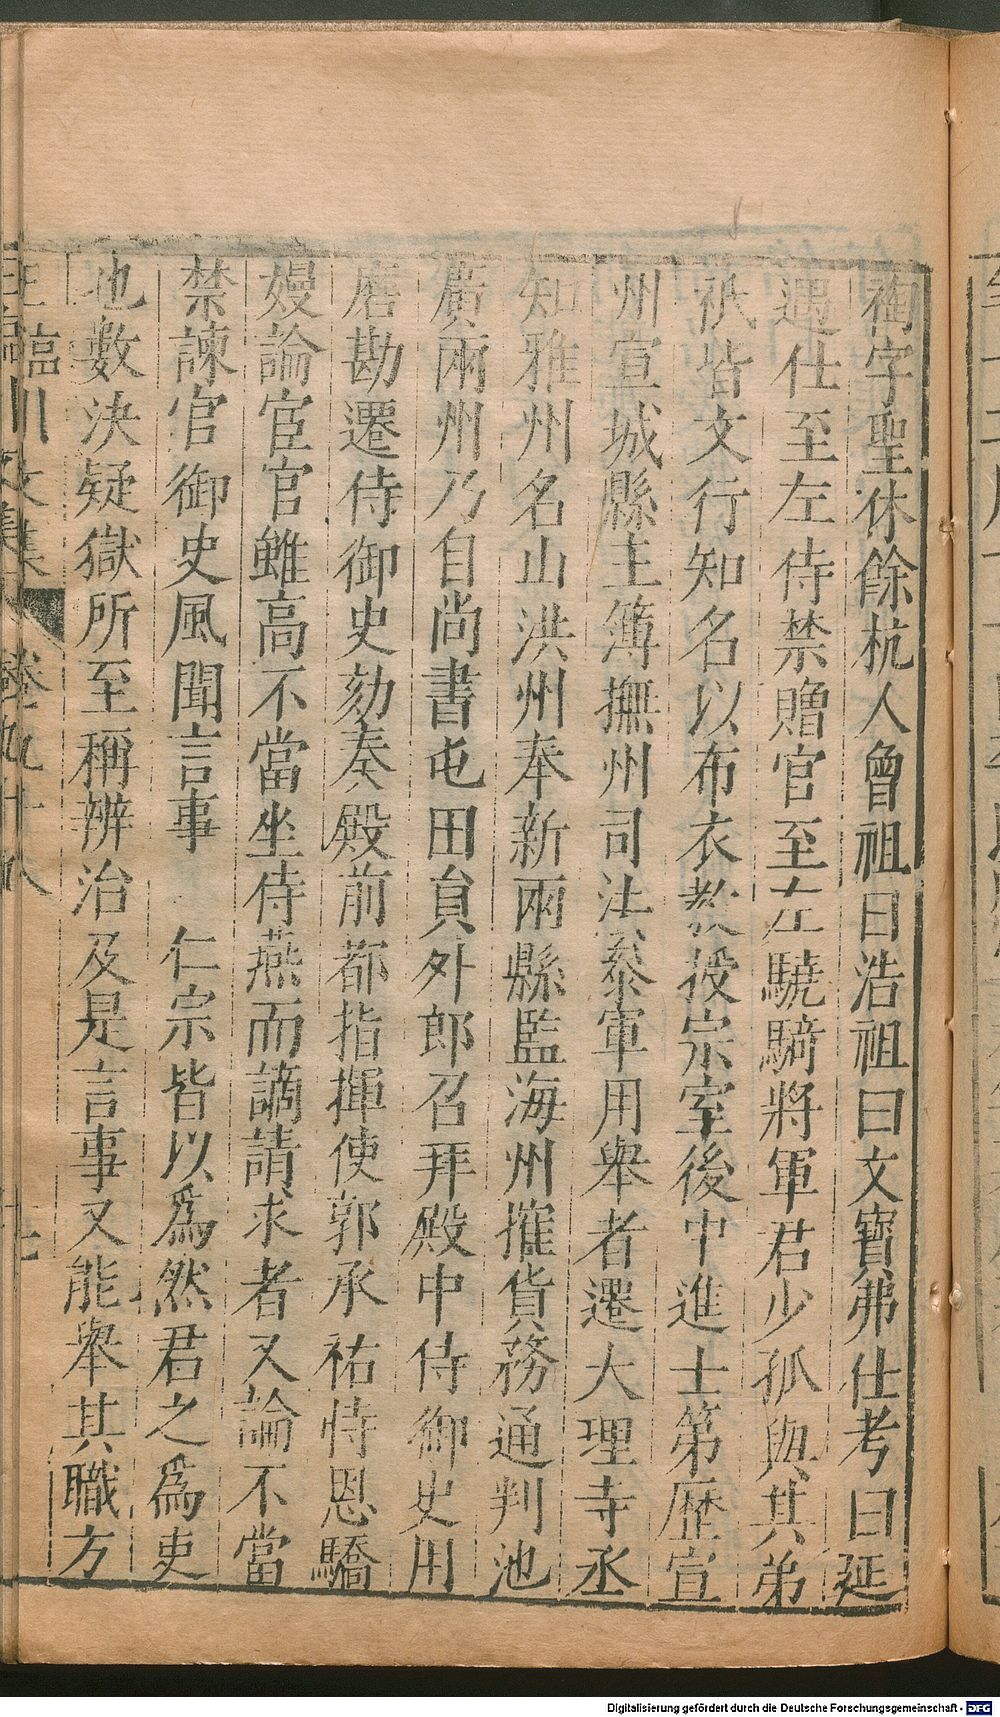 祹字聖休餘杭人曾祖曰浩祖曰文寶弗仕考曰延
遇仕至左侍禁贈官至左驍騎將軍君少孤與其弟
祇皆文行知名以布衣教授宗室後中進士第歷宣
州宣城縣主簿撫州司法叅軍用舉者遷大理寺丞
知雅州名山洪州奉新兩縣監海州搉貨務通判池
廣兩州乃自尚書屯田員外郎召拜殿中侍御史用
磨勘遷侍御史劾奏殿前都指揮使郭承祐恃恩驕
嫚論宦官雖高不當坐侍燕而謫請求者又論不當
禁諫官御史風聞言事 仁宗皆以爲然君之爲吏
也數決疑獄所至稱辨治及是言事又能舉其職方
王臨川文集 卷九十八 十七
Digitalisierung gefördert durch die Deutsche Forschungsgemeinschaft - DFG